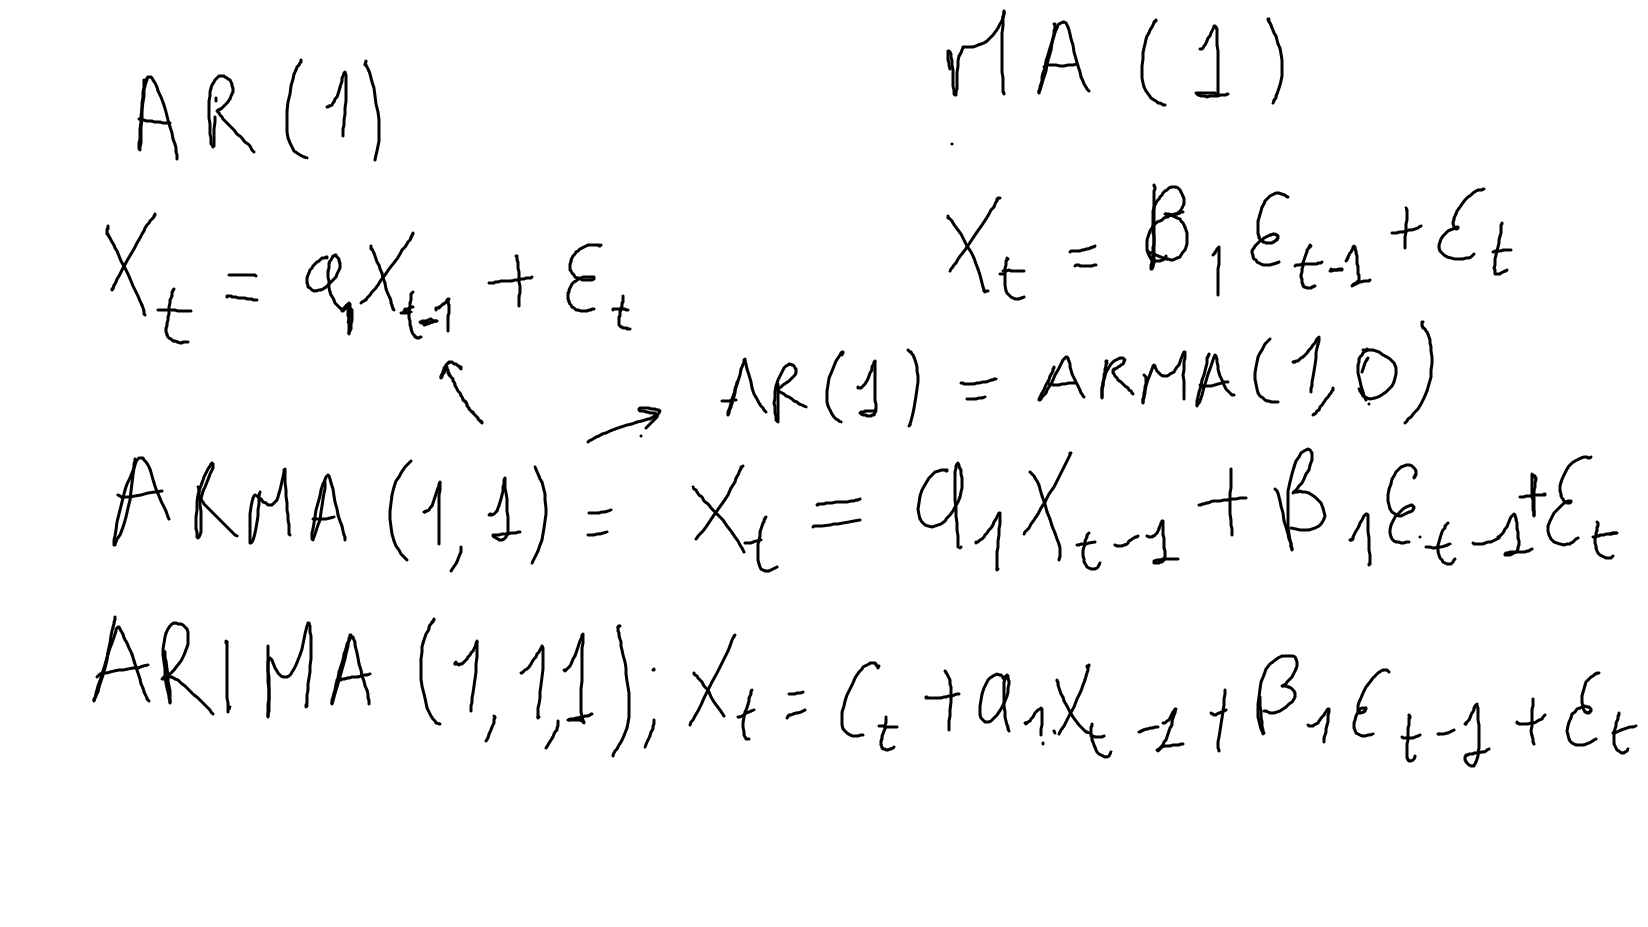 AR(1)
MA(1)
X_t = a_1 X_{t-1} + ε_t
X_t = β_1 ε_{t-1} + ε_t
AR(1) = ARMA(1,0)
ARMA(1,1) = X_t = a_1 X_{t-1} + β_1 ε_{t-1} + ε_t
ARIMA(1,1,1); X_t = C_t + a_1 X_{t-1} + β_1 ε_{t-1} + ε_t